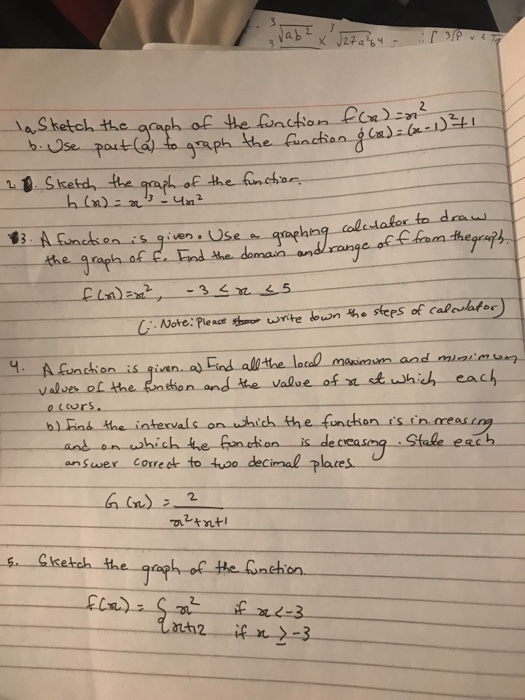 3 ³√ab² × ³√27a²b⁴ -
1a. Sketch the graph of the function f(x) = x²
b. Use part (a) to graph the function g(x) = (x-1)²+1
2. Sketch the graph of the function.
h(x) = x³ - 4x²
3. A function is given. Use a graphing calculator to draw
the graph of f. Find the domain and range of f from the graph.
f(x) = x², -3 ≤ x ≤ 5
(∴ Note: Pleace write down the steps of calculator)
4. A function is given. a) Find all the local maximum and minimum
values of the function and the value of x at which each
occurs.
b) Find the intervals on which the function is increasing
and on which the function is decreasing. State each
answer correct to two decimal places.
G(x) = 2
x²+x+1
5. Sketch the graph of the function.
f(x) = { x² if x < -3
x+12 if x ≥ -3